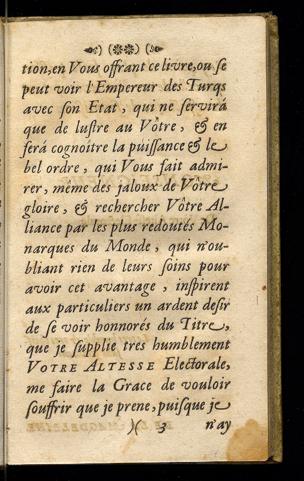 tion, en Vous offrant ce livre, ou se
peut voir l'Empereur des Turqs
avec son Etat, qui ne servirá
que de lustre au Vôtre, & en
ferá cognoitre la puissance & le
bel ordre, qui Vous fait admi-
rer, méme des jaloux de Vôtre
gloire, & rechercher Vôtre Al-
liance par les plus redoutés Mo-
narques du Monde, qui n'ou-
bliant rien de leurs soins pour
avoir cet avantage, inspirent
aux particuliers un ardent desir
de se voir honnorés du Titre,
que je supplie tres humblement
VOTRE ALTESSE Electorale,
me faire la Grace de vouloir
souffrir que je prene, puisque je
)( 3 n'ay